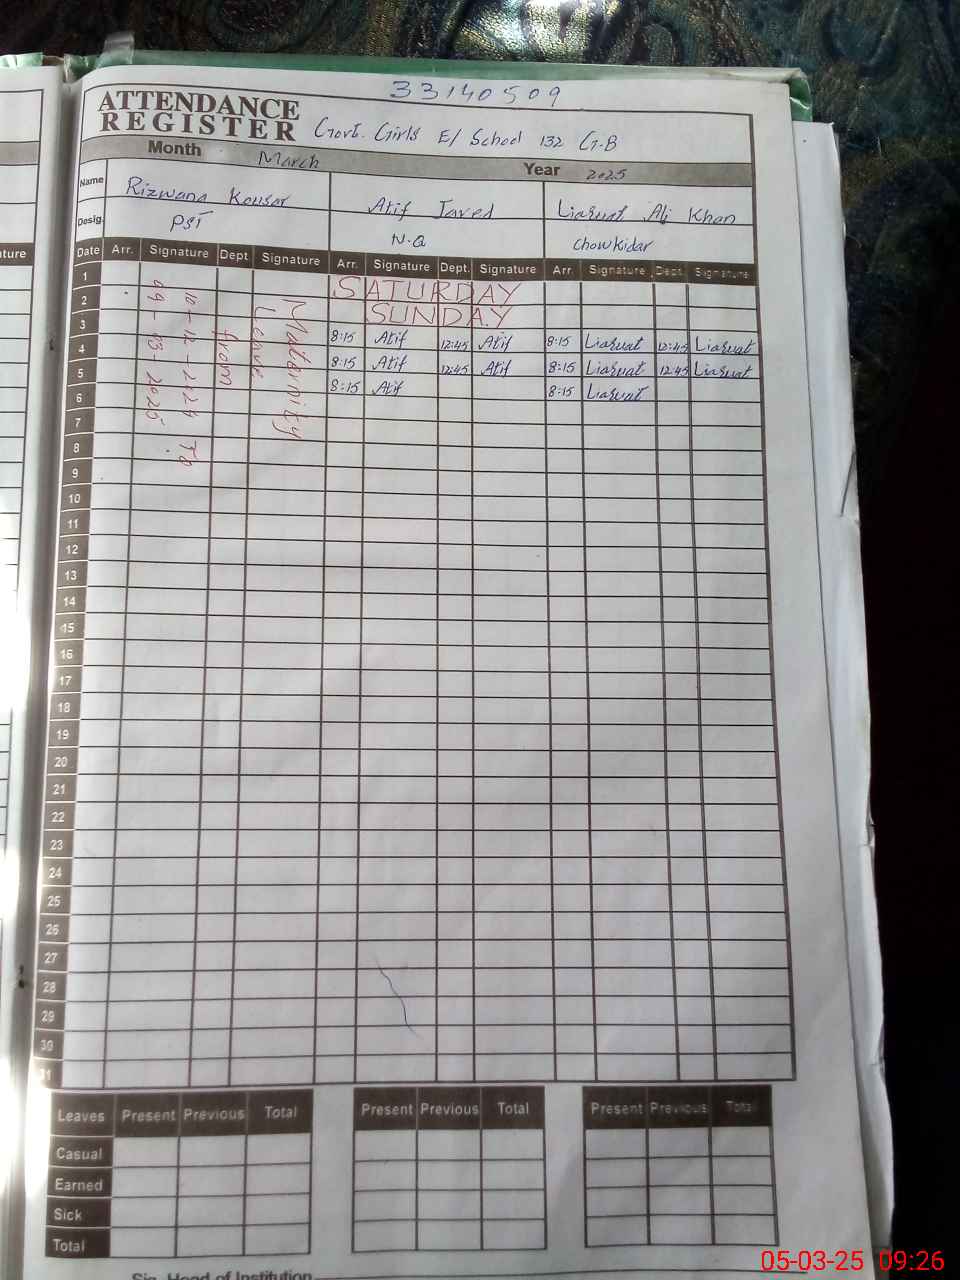 33140509
ATTENDANCE
REGISTER
Govt. Girls E/ School 132 G.B
Month March Year 2025
Name Rizwana Kousar Atif Javed Liaquat Ali Khan
Desig. PST N.Q Chowkidar
Date Arr. Signature Dept. Signature Arr. Signature Dept. Signature Arr. Signature Dept. Signature
Maternity
Leave
from
10-12-2024 To
09-03-2025
1 SATURDAY
2 SUNDAY
3 8:15 Atif 12:45 Atif 8:15 Liaquat 12:45 Liaquat
4 8:15 Atif 12:45 Atif 8:15 Liaquat 12:45 Liaquat
5 8:15 Atif 8:15 Liaquat
6
7
8
9
10
11
12
13
14
15
16
17
18
19
20
21
22
23
24
25
26
27
28
29
30
31
Leaves Present Previous Total Present Previous Total Present Previous Total
Casual
Earned
Sick
Total
Sig. Head of Institution
05-03-25 09:26